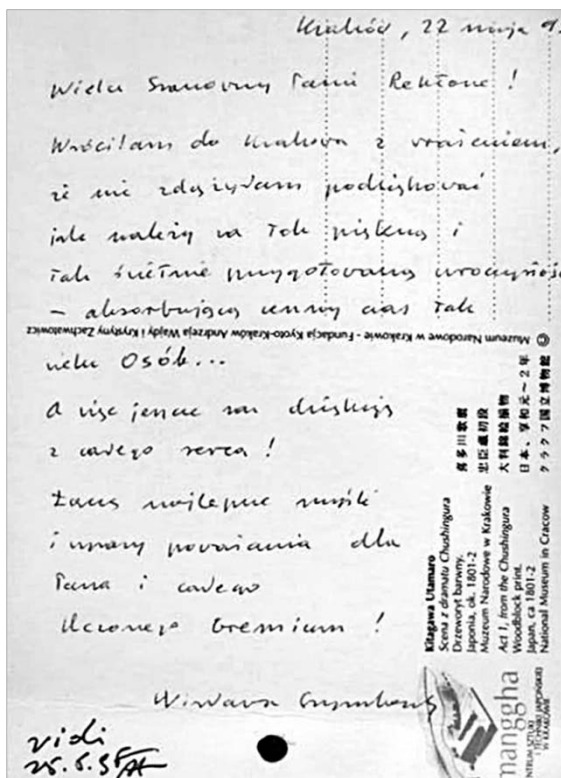 Kraków, 22 maja 9
Wielce Szanowny Panie Rektorze!
Wróciłam do Krakowa z wrażeniem,
że nie zdążyłam podziękować
jak należy za tak piękną i
tak świetnie przygotowaną uroczystość
– absorbującą cenny czas tak
wielu osób...
A więc jeszcze raz dziękuję
z całego serca!
Łączę najlepsze myśli
i wyrazy poważania dla
Pana i całego
Uczonego Gremium!
Wisława Szymborska
vidi
25.5.95
© Muzeum Narodowe w Krakowie - Fundacja Kyoto-Kraków Andrzeja Wajdy i Krystyny Zachwatowicz
Kitagawa Utamaro
Scena z dramatu Chushingura
Drzeworyt barwny.
Japonia, ok. 1801-2
Muzeum Narodowe w Krakowie
Act I, from the Chushingura
Woodblock print.
Japan, ca 1801-2
National Museum in Cracow
喜多川歌麿
忠臣蔵初段
大判錦絵揃物
日本、享和元~2年
クラクフ国立博物館
manggha
CENTRUM SZTUKI
I TECHNIKI JAPOŃSKIEJ
W KRAKOWIE